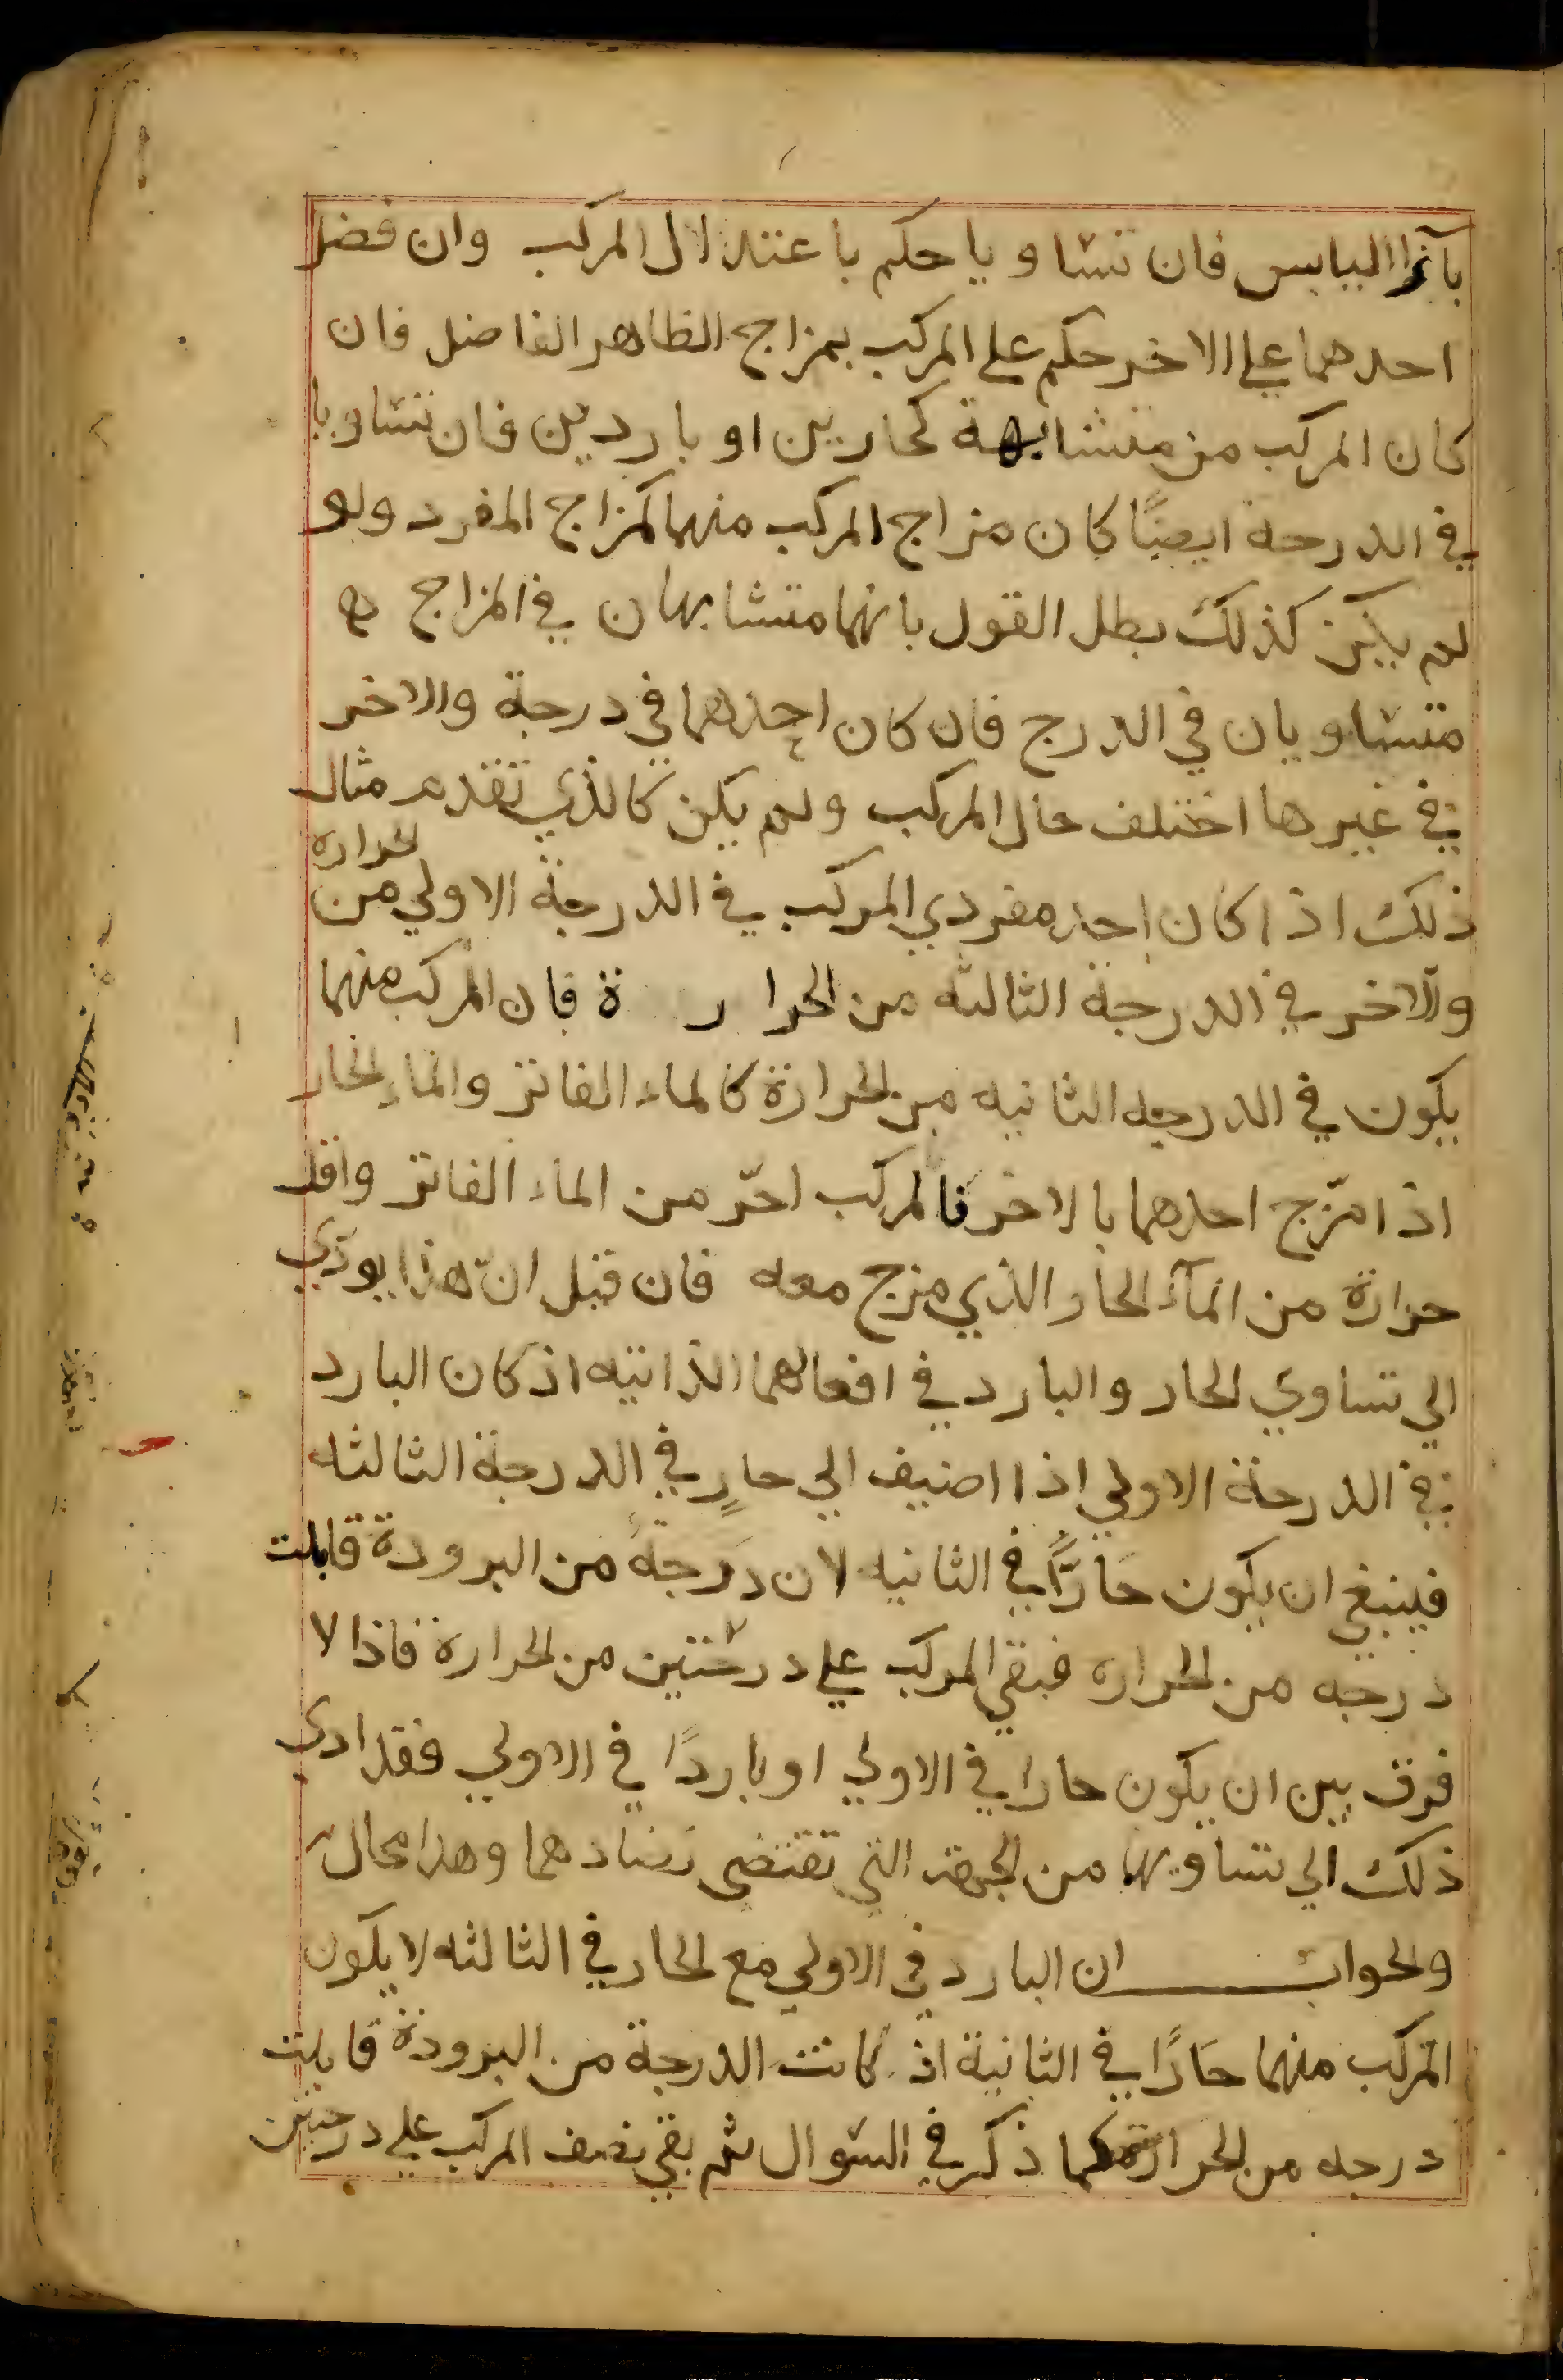 بآزا اليابس فان تساويا حكم باعتدال المركب وان فضل
احدهما علي الاخر حكم علي المركب بمزاج الظاهر الفاضل فان
كان المركب من متشابهة كحارين او باردين فان تساويا
في الدرجة ايضًا كان مزاج المركب منهما كمزاج المفرد ولو
لم يكن كذلك بطل القول بانهما متشابهان في المزاج
متساويان في الدرج فان كان احدهما في درجة والاخر
في غيرها اختلف حال المركب ولم يكن كالذي تقدم مثال
ذلك اذا كان احد مفردي المركب في الدرجة الاولي من الحرارة
والاخر في الدرجة الثالثه من الحرارة فان المركب منهما
يكون في الدرجه الثانيه من الحرارة كالماء الفاتر والماء الحار
اذا مزج احدهما بالاخر فالمركب احرّ من الماء الفاتر واقل
حرارة من المآء الحار الذي مزج معه فان قيل انّ هذا يودّي
الي تساوي الحار والبارد في افعالهما الذاتيه اذ كان البارد
في الدرجة الاولي اذا اضيف الي حارٍ في الدرجة الثالثه
فينبغي ان يكون حَارًّا في الثانيه لان دَرجةً من البرودة قابلت
درجه من الحراره فبقي المركب علي درجتين من الحرارة فاذا لا
فرق بين ان يكون حارا في الاولي او باردًا في الاولي فقد ادي
ذلك الي تساويهما من الجهة التي تقتضي تضادهما وهذا محال
والجواب ان البارد في الاولي مع الحار في الثالثه لا يكون
المركب منهما حَارًا في الثانية اذ كانت الدرجة من البرودة قابلت
درجه من الحرارة كما ذكر في السوال ثم بقي نصف المركب علي درجتين